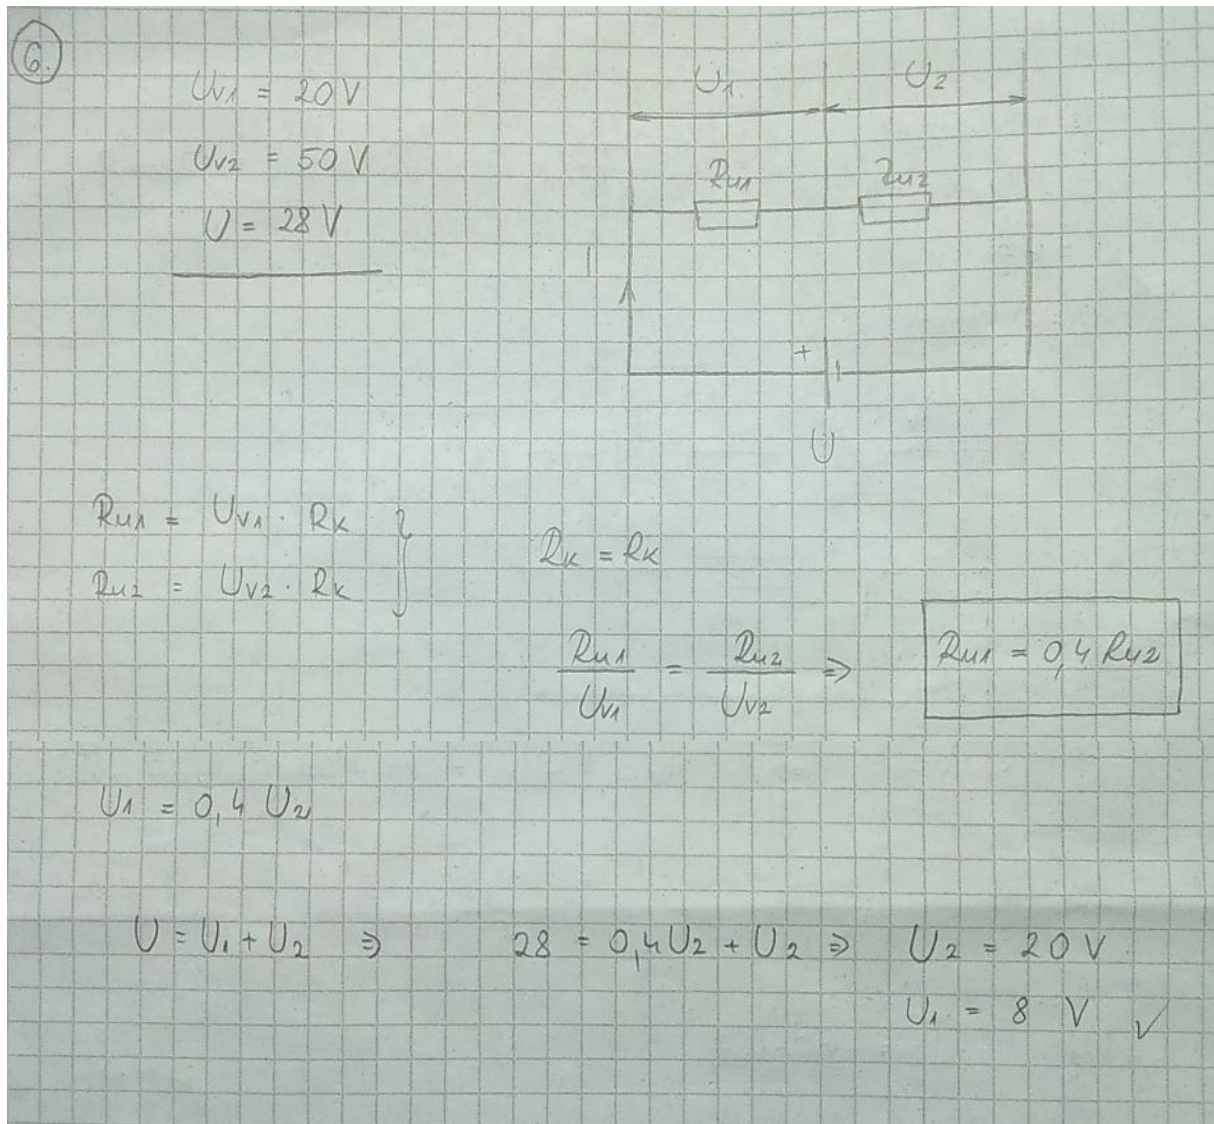 6.
Uv1 = 20 V
Uv2 = 50 V
U = 28 V
U1
U2
Ru1
Ru2
I
+
U
Ru1 = Uv1 · Rk
Ru2 = Uv2 · Rk
Rk = Rk
Ru1 / Uv1 = Ru2 / Uv2 ⇒
Ru1 = 0,4 Ru2
U1 = 0,4 U2
U = U1 + U2 ⇒ 28 = 0,4U2 + U2 ⇒ U2 = 20 V
U1 = 8 V ✓